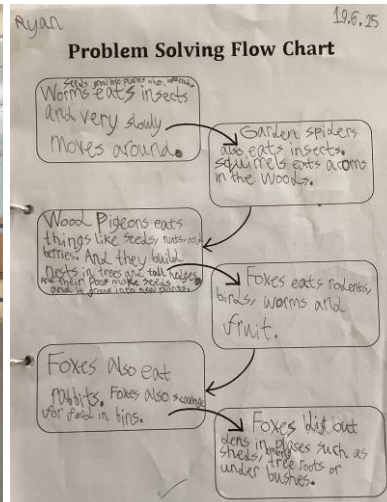 Ryan
19.6.25
Problem Solving Flow Chart
Seeds grow into plants when
Worms eats insects
and very slowly
moves around.
Garden spiders
also eats insects.
squirrels eats acorns
in the woods.
Wood Pigeons eats
things like seeds, nuts and
berries. And they build
nests in trees and tall hedges
and their poos make seeds
and it grows into new plants.
Foxes eats rodents,
birds, worms and
fruit.
Foxes Also eat
rabbits. Foxes also scavange
for food in bins.
Foxes dig out
dens in plases such as
sheds, tree roots or
under bushes.